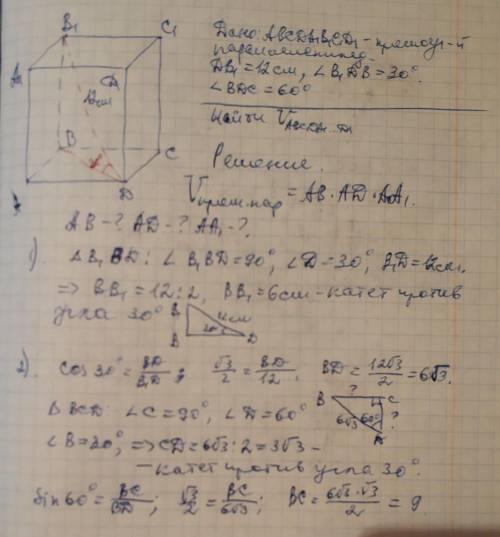 Дано: ABCDA₁B₁C₁D₁ - прямоуг-й
параллелепипед.
DB₁ = 12 см, ∠B₁DB = 30°.
∠BDC = 60°
Найти V
Решение.
Vпрям.пар = AB · AD · AA₁.
B₁
C₁
A₁
D₁
12см
B
C
D
AB - ? AD - ? AA₁ - ?
1) ΔB₁BD: ∠B₁BD = 90°, ∠D = 30°, B₁D = 12см,
=> BB₁ = 12 : 2, BB₁ = 6см - катет против
угла 30°
B₁ 12см
B 30° D
2) cos 30° = BD/B₁D; √3/2 = BD/12; BD = 12√3/2 = 6√3.
? B C
ΔBCD: ∠C = 90°, ∠D = 60° 6√3 60° ?
∠B = 30°, => CD = 6√3 : 2 = 3√3 -
- катет против угла 30°.
Sin 60° = BC/BD; √3/2 = BC/6√3; BC = 6√3·√3/2 = 9